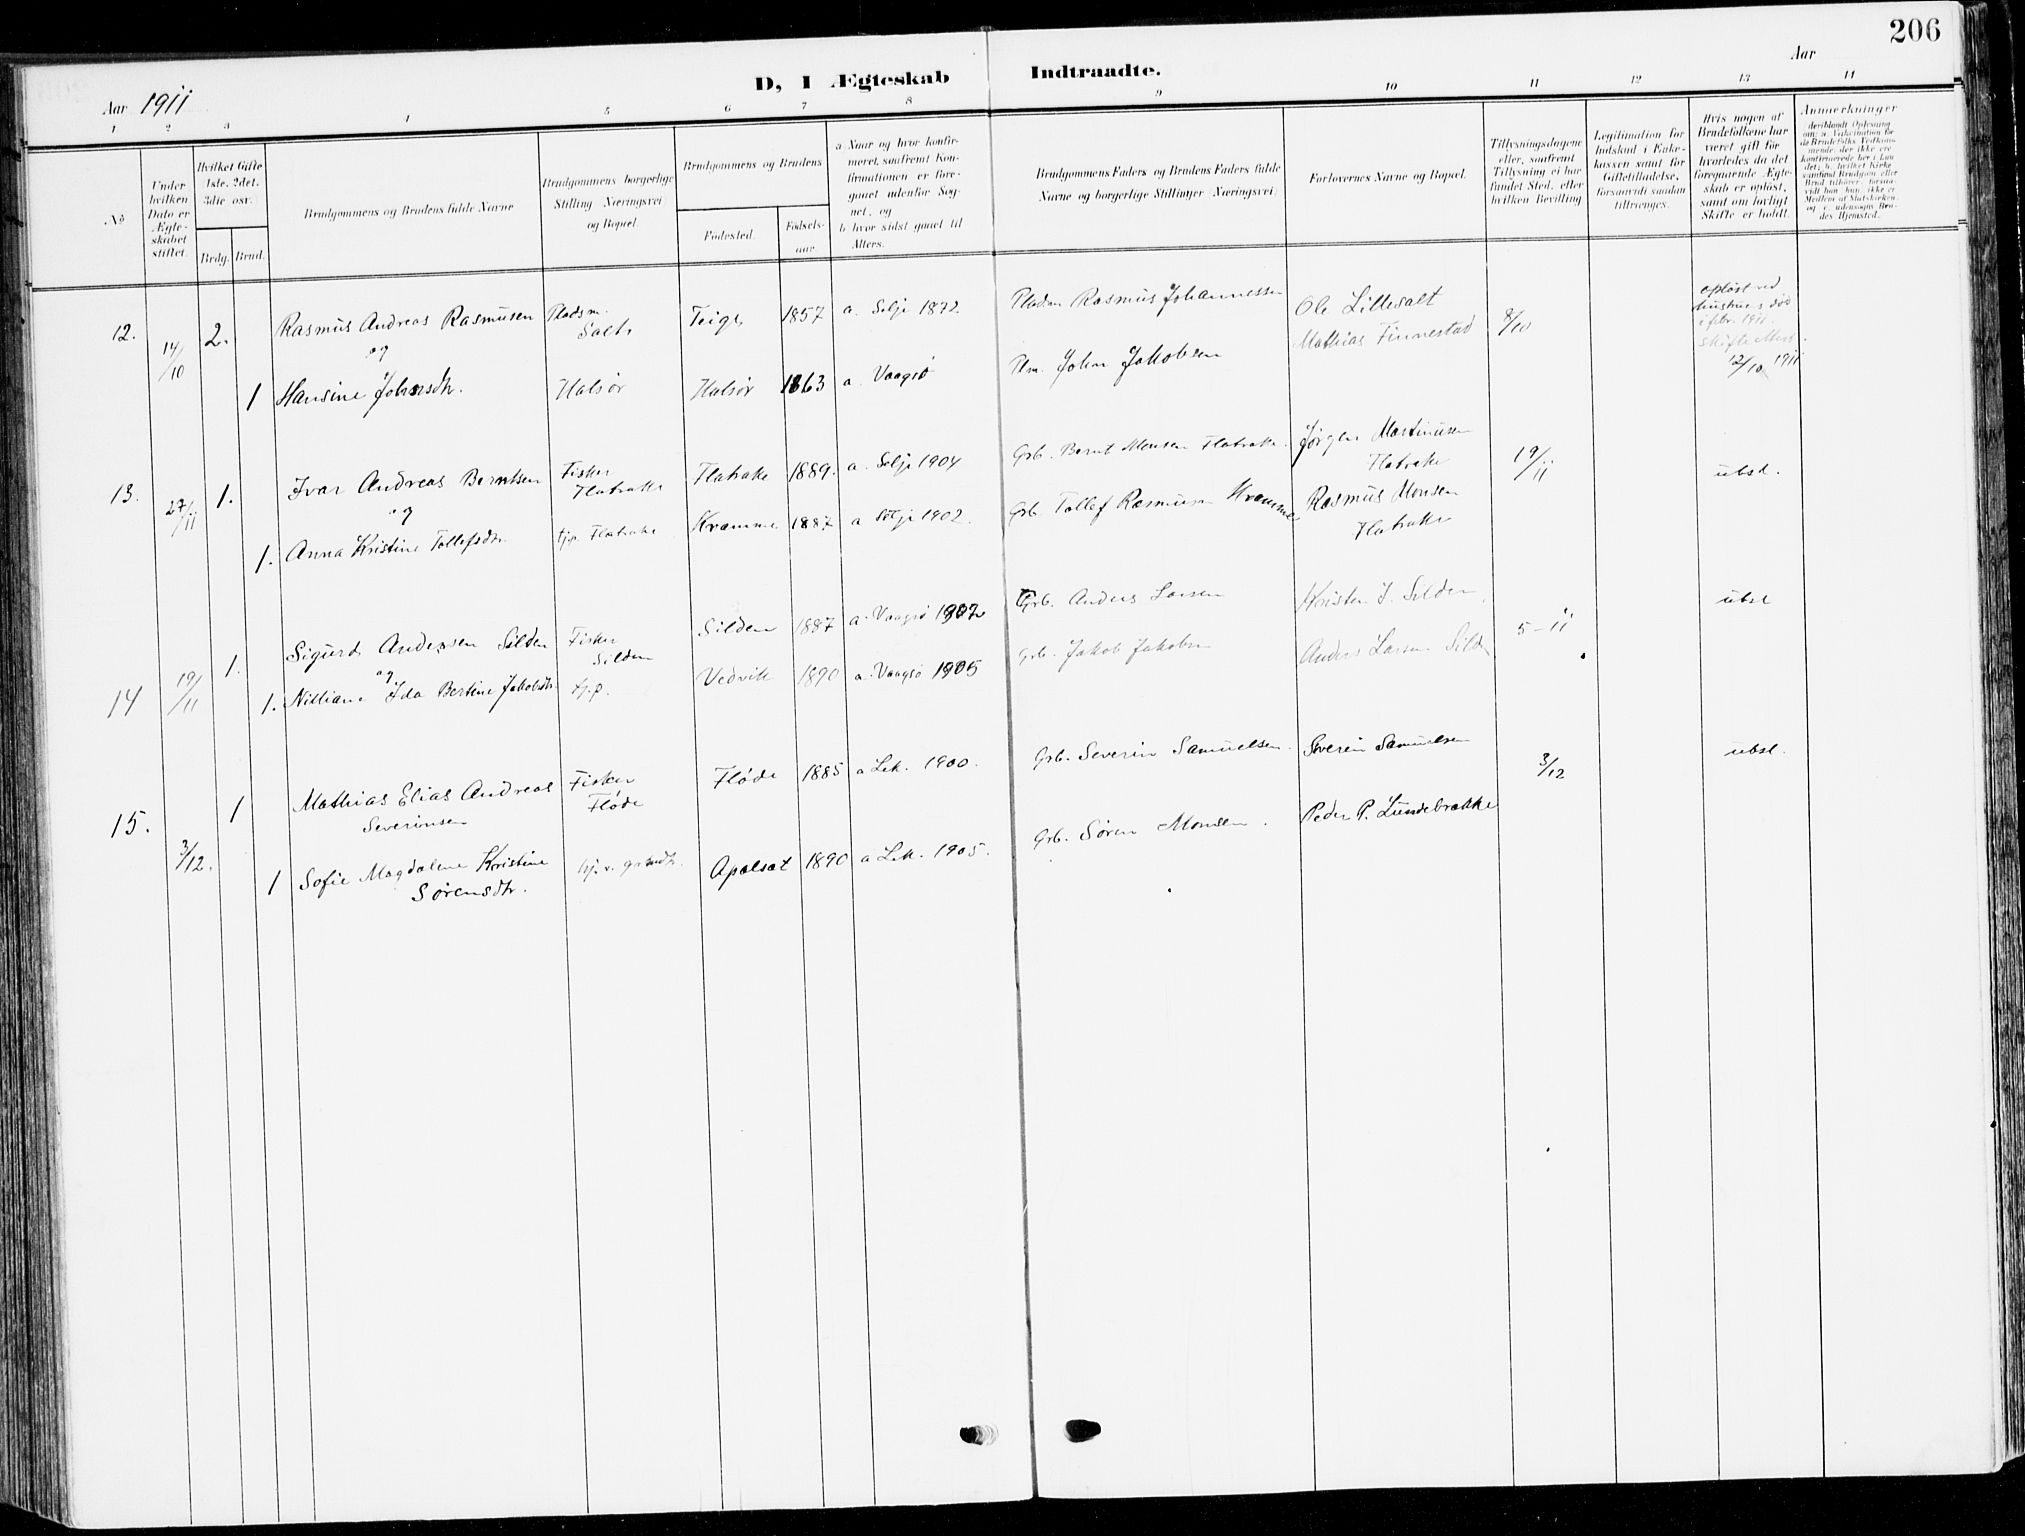 206
D, I Ægteskab Indtraadte.
Aar 1911
Aar
1 2 3 4 5 6 7 8 9 10 11 12 13 14
No
Under hvilken Dato er Ægte-skabet stiftet.
Hvilket Gifte 1ste, 2det, 3die osv.
Brdg. Brud.
Brudgommens og Brudens fulde Navne
Brudgommens borgerlige Stilling Næringsvei og Bopæl.
Brudgommens og Brudens
Fødested.
Fødsels-aar
a Naar og hvor konfir-meret, saafremt Kon-firmationen er fore-gaaet udenfor Sog-net, og
b hvor sidst gaaet til Alters.
Brudgommens Faders og Brudens Faders fulde Navne og borgerlige Stillinger (Næringsvei)
Forlovernes Navne og Bopæl.
Tillysningsdagene eller, saafremt Tillysning ei har fundet Sted, efter hvilken Bevilling
Legitimation for Indskud i Enke-kassen samt for Giftetilladelse, forsaavidt saadan tiltrænges.
Hvis nogen af Brudefolkene har været gift før hvorledes da det foregaaende Ægte-skab er opløst, samt om lovligt Skifte er holdt.
Anmerkninger
12. 14/10 2. Rasmus Andreas Rasmusen Pladsm. Salt Teige 1857 a. Selje 1872 Pladsm Rasmus Johannessen Ole Lillesalt 8/10 opløst ved hustrues død i febr. 1911.
og
Mathias Finnestad
12/10 1911
1 Hansine Johnsdtr. Halsør Halsør 1863 a. Vaagsø Plm. John Jakobsen
13. 27/11 1. Ivar Andreas Berntsen Fisker Flatrake Flatrake 1889. a. Selje 1904 Grb. Bernt Monsen Flatrake. Jørgen Martinusen Flatrake 19/11 ubsl.
og
1. Anna Kristine Tollefsdtr. tjp. Flatrake Kvamme 1887 a Selje 1902. Grb. Tollef Rasmusen Kvamme Rasmus Monsen Flatrake
14 19/11 1. Sigurd Andersen Silden Fisker Silden Silden 1887 a. Vaagsø 1902 Grb. Anders Larsen Kristen J. Silden 5-11 ubsl
og
1. Nilliane Ida Bertine Jakobsdtr. tjp. Vedvik 1890 a. Vaagsø 1905 Grb. Jakob Jakobsen Anders Larsen Silden
15. 3/12. 1 Mathias Elias Andreas Severinsen Fisker Fløde Fløde 1885 a Lek. 1900. Grb. Severin Samuelsen. Severin Samuelsen 3/12 ubsl.
1 Sofie Magdalene Kristine Sørensdtr. Apalset 1890 a Lek. 1905. Grb. Søren Monsen. Peder P. Lundebrække